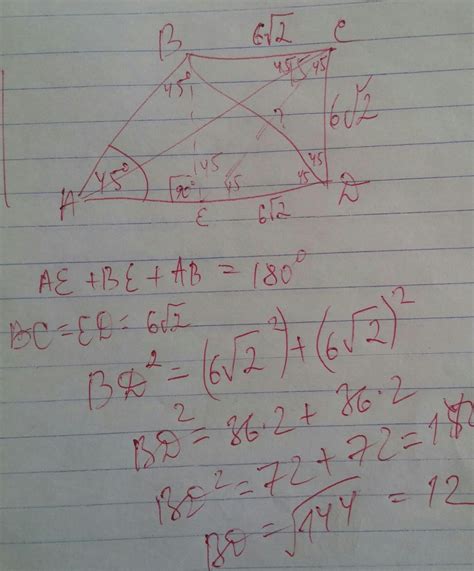 6√2
B C
45° 45 45
? 6√2
45 45
A 45° 90° 45 45 D
E 6√2
AE + BE + AB = 180°
BC = ED = 6√2
BD² = (6√2²) + (6√2)²
BD² = 36·2 + 36·2
BD² = 72 + 72 = 144
BD = √144 = 12